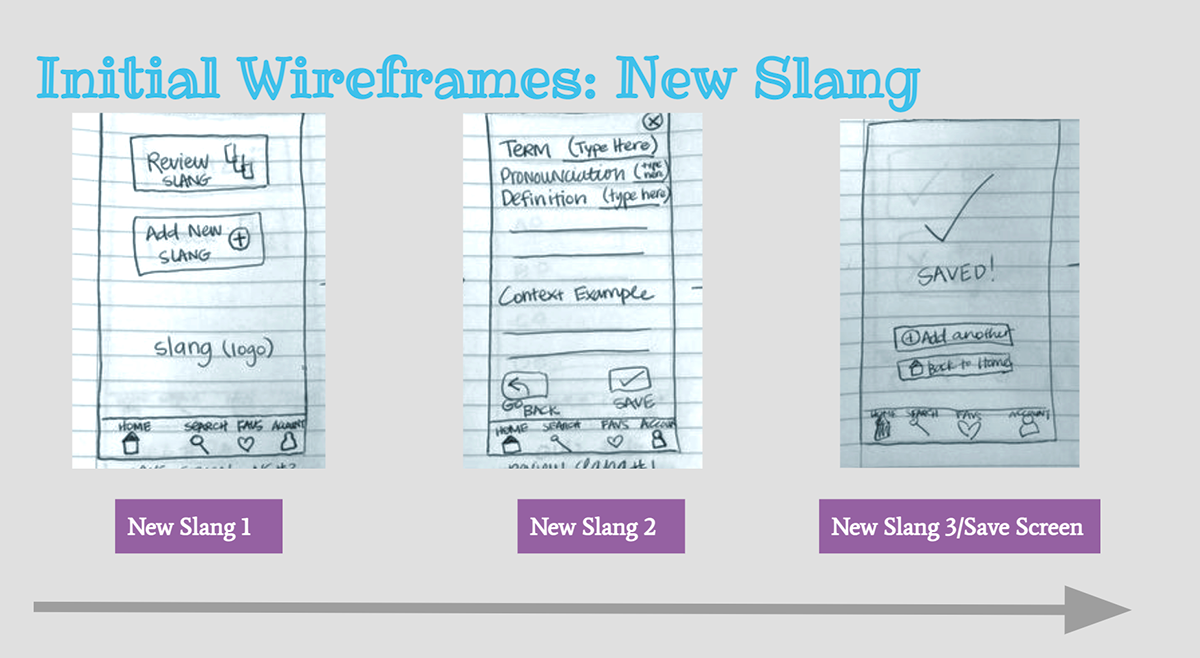 Initial Wireframes: New Slang
Review
SLANG
Add New
SLANG
slang (logo)
HOME SEARCH FAVS ACCOUNT
TERM (Type Here)
Pronounciation (type here)
Definition (type here)
Context Example
GO BACK
SAVE
HOME SEARCH FAVS ACCOUNT
SAVED!
Add another
Back to Home
HOME SEARCH FAVS ACCOUNT
New Slang 1
New Slang 2
New Slang 3/Save Screen